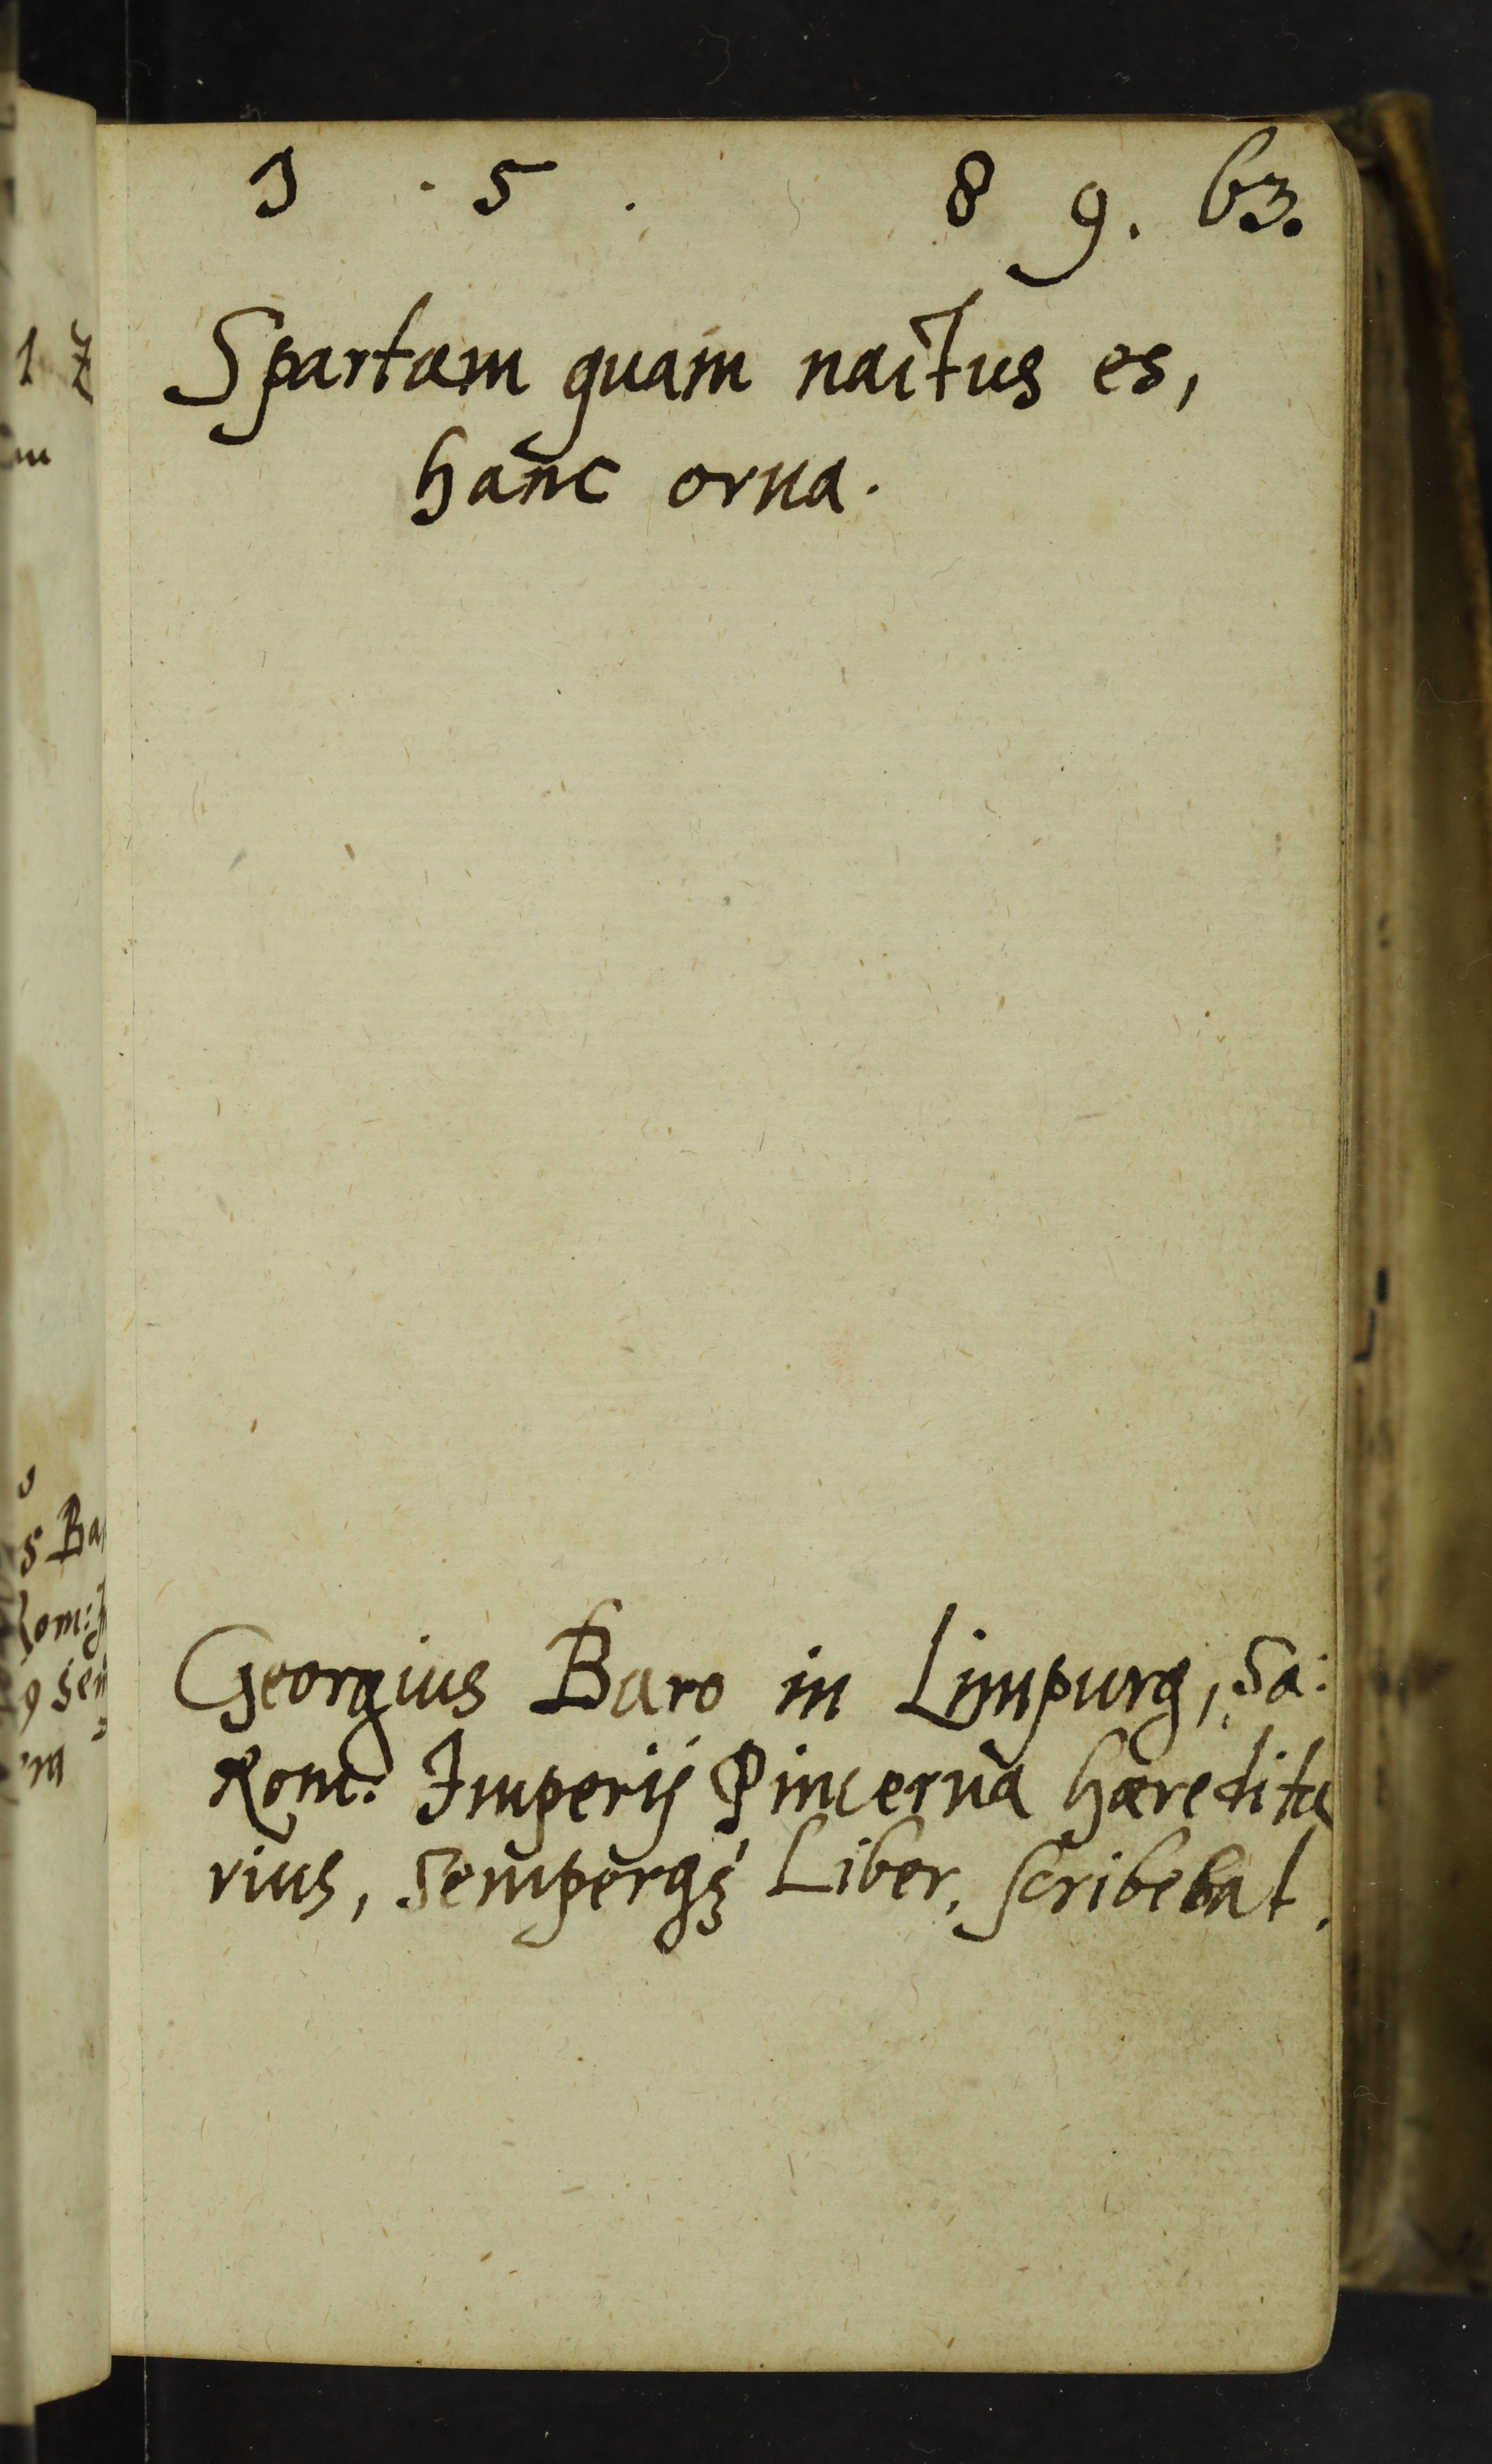 1 . 5 . 8 9. 63.
Spartam quam nactus es,
hanc orna.
Georgius Baro in Limpurg, Sa:
Rom: Imperij Pincerna hæredita
rius, Semperqꝫ Liber, scribebat.